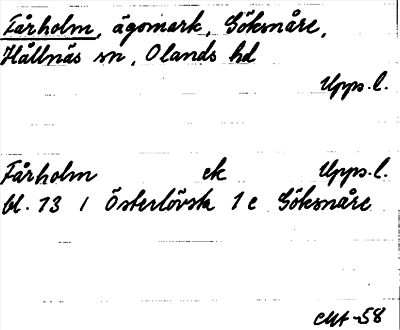 Fårholm, ägomark, Göksnåre,
Hållnäs sn, Olands hd
Upps.l.
Fårholm ek Upps.l.
bl. 73 1 Österlövsta 1 e Göksnåre
-58